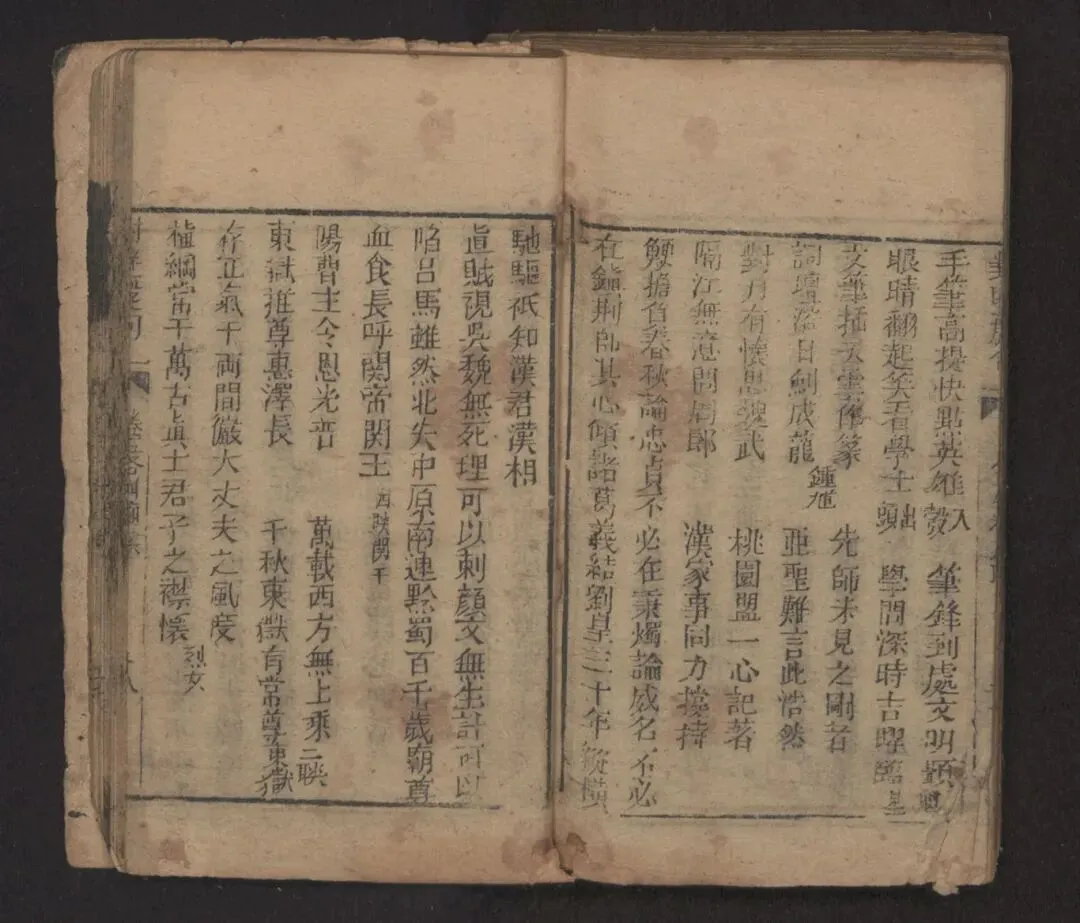 手筆高提快點英雄入彀　筆鋒到處文明顯魁
眼睛翻起笑看學士出頭　學問深時吉曜臨星
文筆插天雲作篆　先師未見之剛者
詞聲落日劍成龍鍾馗　亞聖難言此浩然
對月有懷思魏武　桃園盟一心記著
隔江無意問周郎　漢家事同力撐持
鯁擔負春秋論忠貞不必在秉燭論威名不必
在鎮荊師其心傾諸葛義結劉皇三十年縱橫
馳驅祇知漢君漢相
真賊視吳魏無死理可以刺顏文無生計可以
陷呂馬雖然北失中原南連黔蜀百千歲廟尊
血食長呼関帝関王西陝関干
陽曹主令恩光普　萬載西方無上乘二聯
東嶽推尊惠澤長　千秋東嶽有常尊東嶽
存正氣于兩間儼大丈夫之風度
植綱常于萬古真士君子之襟懷烈女